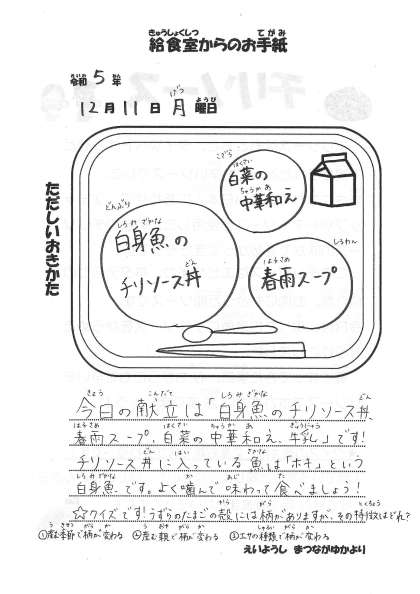 給食室からのお手紙
令和5年
12月11日月曜日
ただしいおきかた
白菜の
中華和え
白身魚の
チリソース丼
春雨スープ
今日の献立は「白身魚のチリソース丼、
春雨スープ、白菜の中華和え、牛乳」です!
チリソース丼に入っている魚は「ホキ」という
白身魚です。よく噛んで味わって食べましょう!
☆クイズです!うずらのたまごの殻には柄がありますが、その特徴はどれ?
で柄が変わる ②産む親で柄が変わる ③エサの種類で柄が変わる
えいようし まつながゆかより